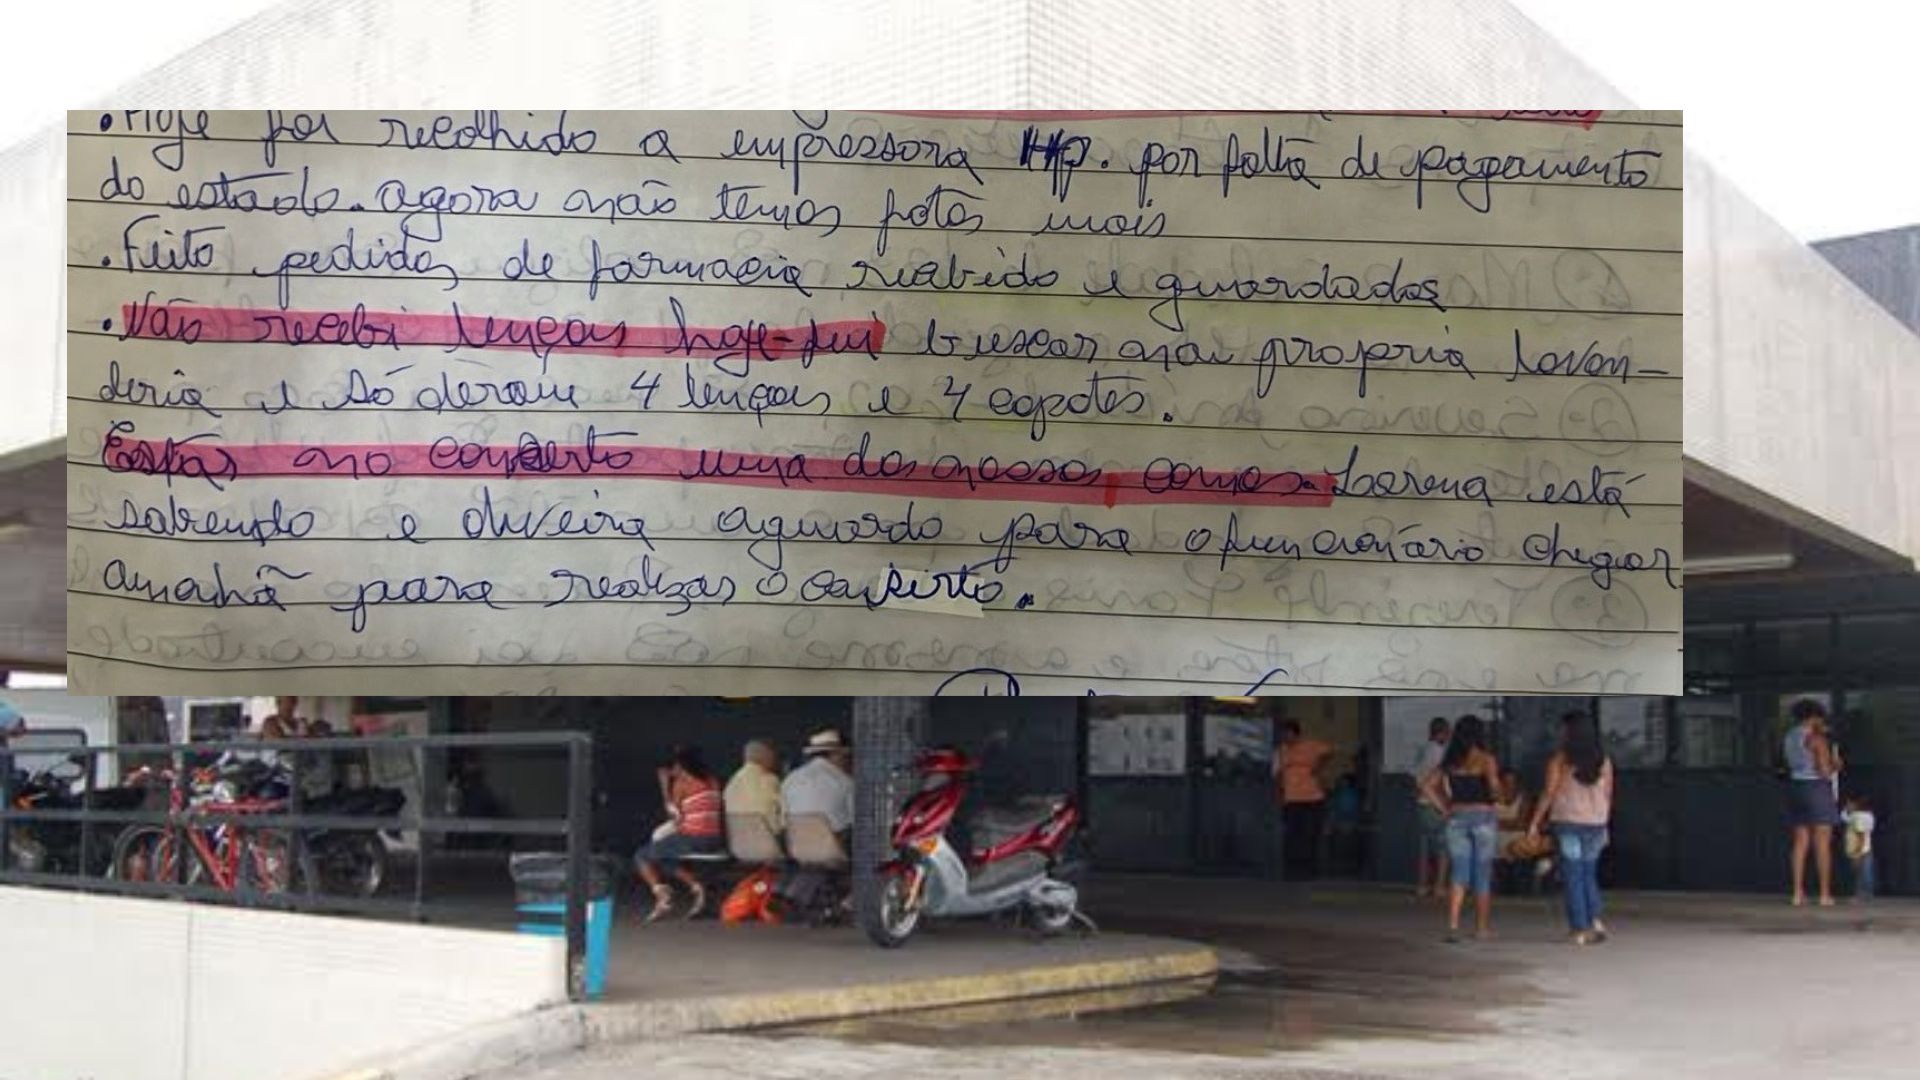 .Hoje foi recolhido a empressora HP. por falta de pagamento
do estado. agora não temos fotos mais
.Feito pedidos de farmacia recebido e guardados
.Não recebi lençois hoje-fui buscar na propria lavan-
deria e só deram 4 lençois e 4 capotes.
Estar no conserto uma das nossas camas. Lorena está
sabendo e oliveira aguardo para o funcionário chegar
amanhã para realizar o conserto.